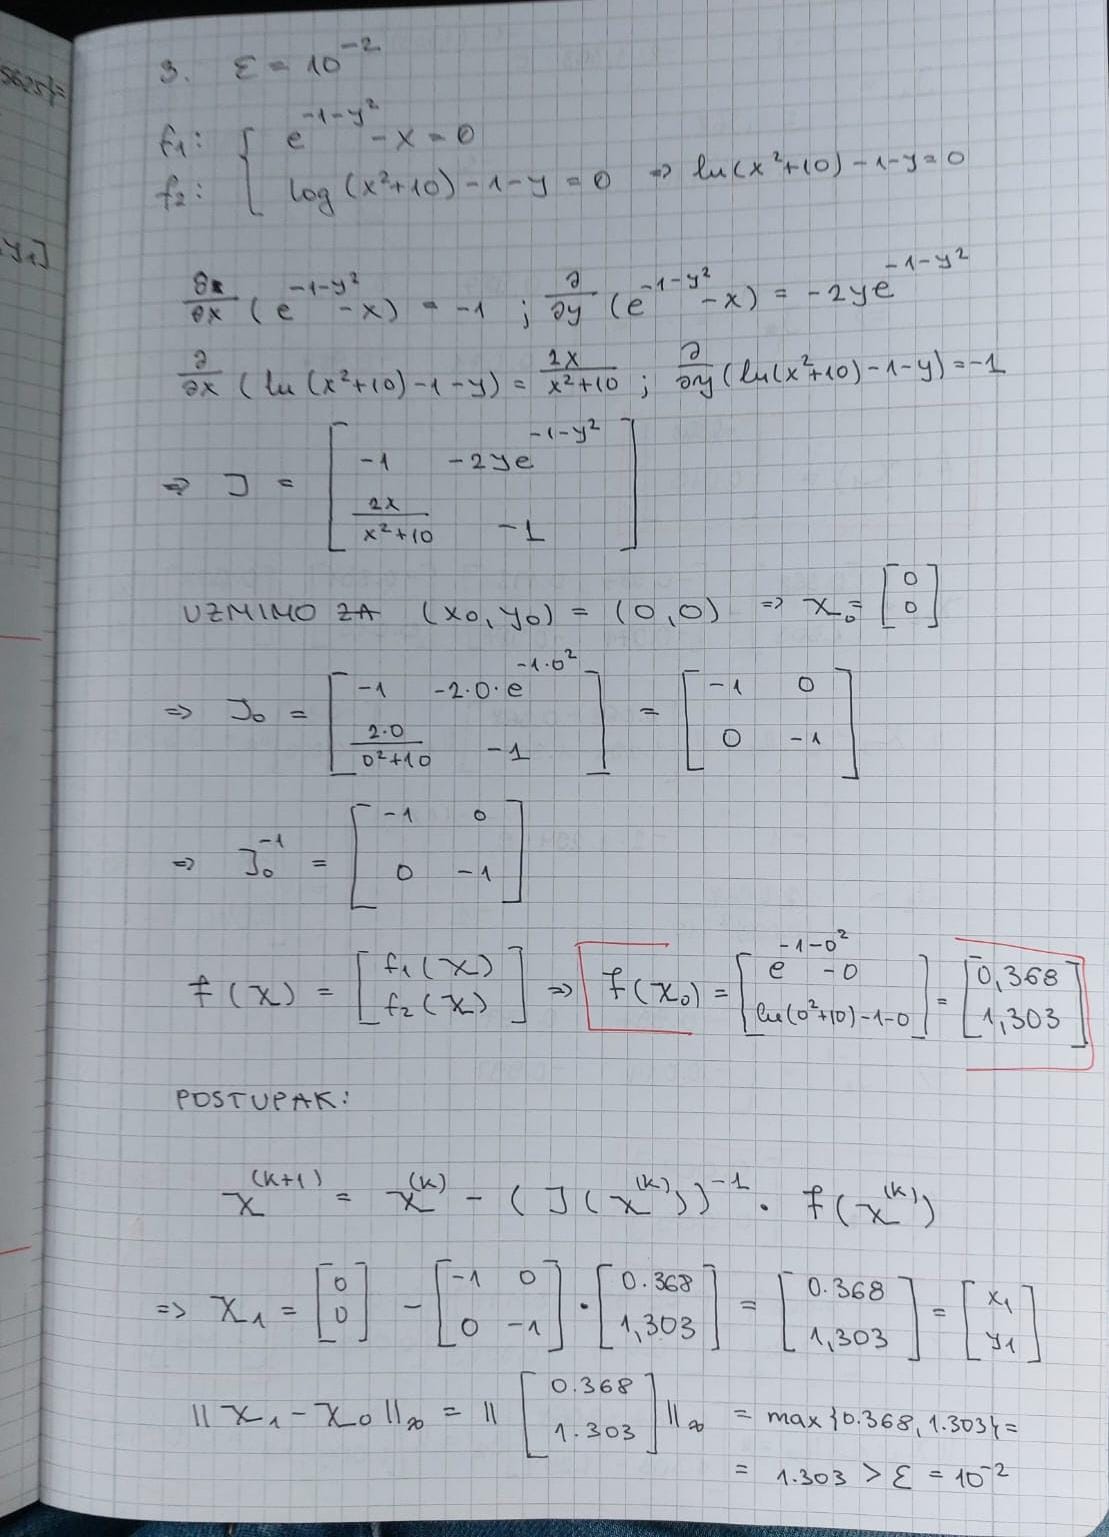 5625}=
y1]
3. ε = 10^-2
f1: { e^(-1-y^2) - x = 0
f2: { log(x^2+10) - 1 - y = 0 ⇒ ln(x^2+10) - 1 - y = 0
∂/∂x (e^(-1-y^2) - x) = -1 ; ∂/∂y (e^(-1-y^2) - x) = -2ye^(-1-y^2)
∂/∂x (ln(x^2+10) - 1 - y) = 2x/(x^2+10) ; ∂/∂y (ln(x^2+10) - 1 - y) = -1
⇒ J = [ -1  -2ye^(-1-y^2) ; 2x/(x^2+10)  -1 ]
UZMIMO ZA (x0, y0) = (0,0) ⇒ x0 = [ 0 ; 0 ]
⇒ J0 = [ -1  -2·0·e^(-1·0^2) ; 2·0/(0^2+10)  -1 ] = [ -1  0 ; 0  -1 ]
⇒ J0^-1 = [ -1  0 ; 0  -1 ]
f(x) = [ f1(x) ; f2(x) ] ⇒ f(x0) = [ e^(-1-0^2) - 0 ; ln(0^2+10) - 1 - 0 ] = [ 0,368 ; 1,303 ]
POSTUPAK:
x^(k+1) = x^(k) - (J(x^(k)))^-1 · f(x^(k))
⇒ x1 = [ 0 ; 0 ] - [ -1  0 ; 0  -1 ] · [ 0.368 ; 1,303 ] = [ 0.368 ; 1,303 ] = [ x1 ; y1 ]
|| x1 - x0 ||∞ = || [ 0.368 ; 1.303 ] ||∞ = max{0.368, 1.303} =
= 1.303 > ε = 10^-2